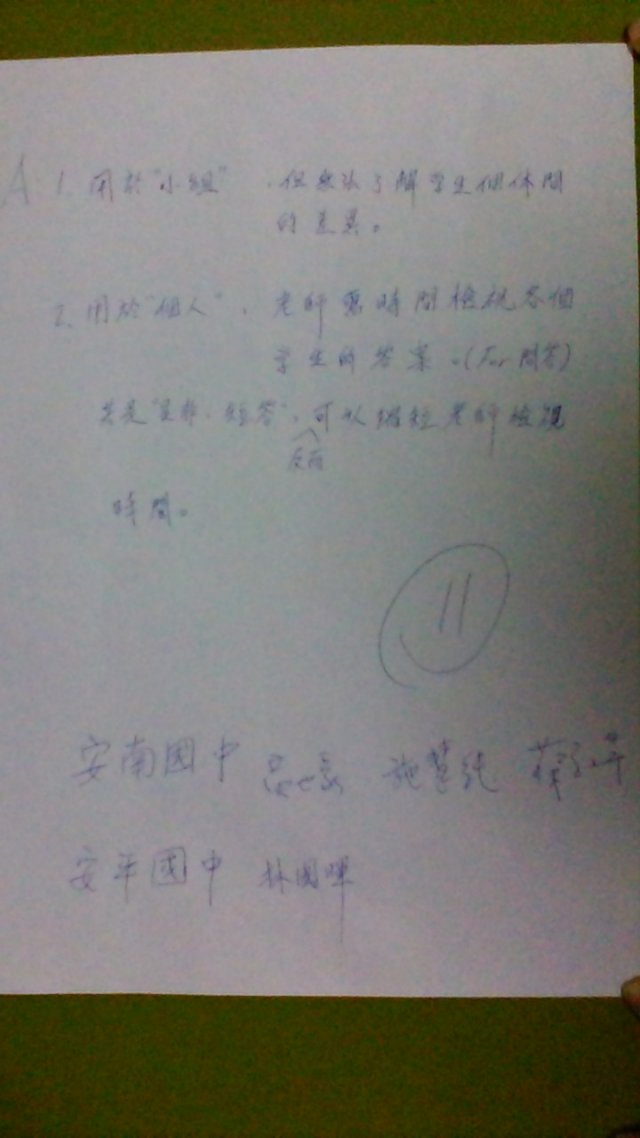 A: 1. 用於"小組"，但無法了解學生個体間
的差異。
2. 用於"個人"，老師需時間檢視各個
學生的答案。(For 問答)
若是"是非、短答"，可以縮短老師檢視
反而
時間。
11
安南國中 施慧純
安平國中 林國暉